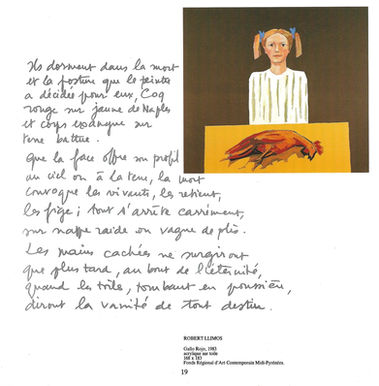 Ils dorment dans la mort
et la posture que le peintre
a décidée pour eux, Coq
rouge sur jaune de Naples
et corps exsangue sur
terre battue.
Que la face offre son profil
au ciel ou à la terre, la mort
convoque les vivants, les retient,
les fige ; tout s'arrête carrément,
sur nappe raide ou vague de plis.
Les mains cachées ne surgiront
que plus tard, au bout de l'éternité,
quand les toiles, tombant en poussière,
diront la vanité de tout destin.
ROBERT LLIMOS
Gallo Rojo, 1983
acrylique sur toile
168 x 183
Fonds Régional d'Art Contemporain Midi-Pyrénées.
19